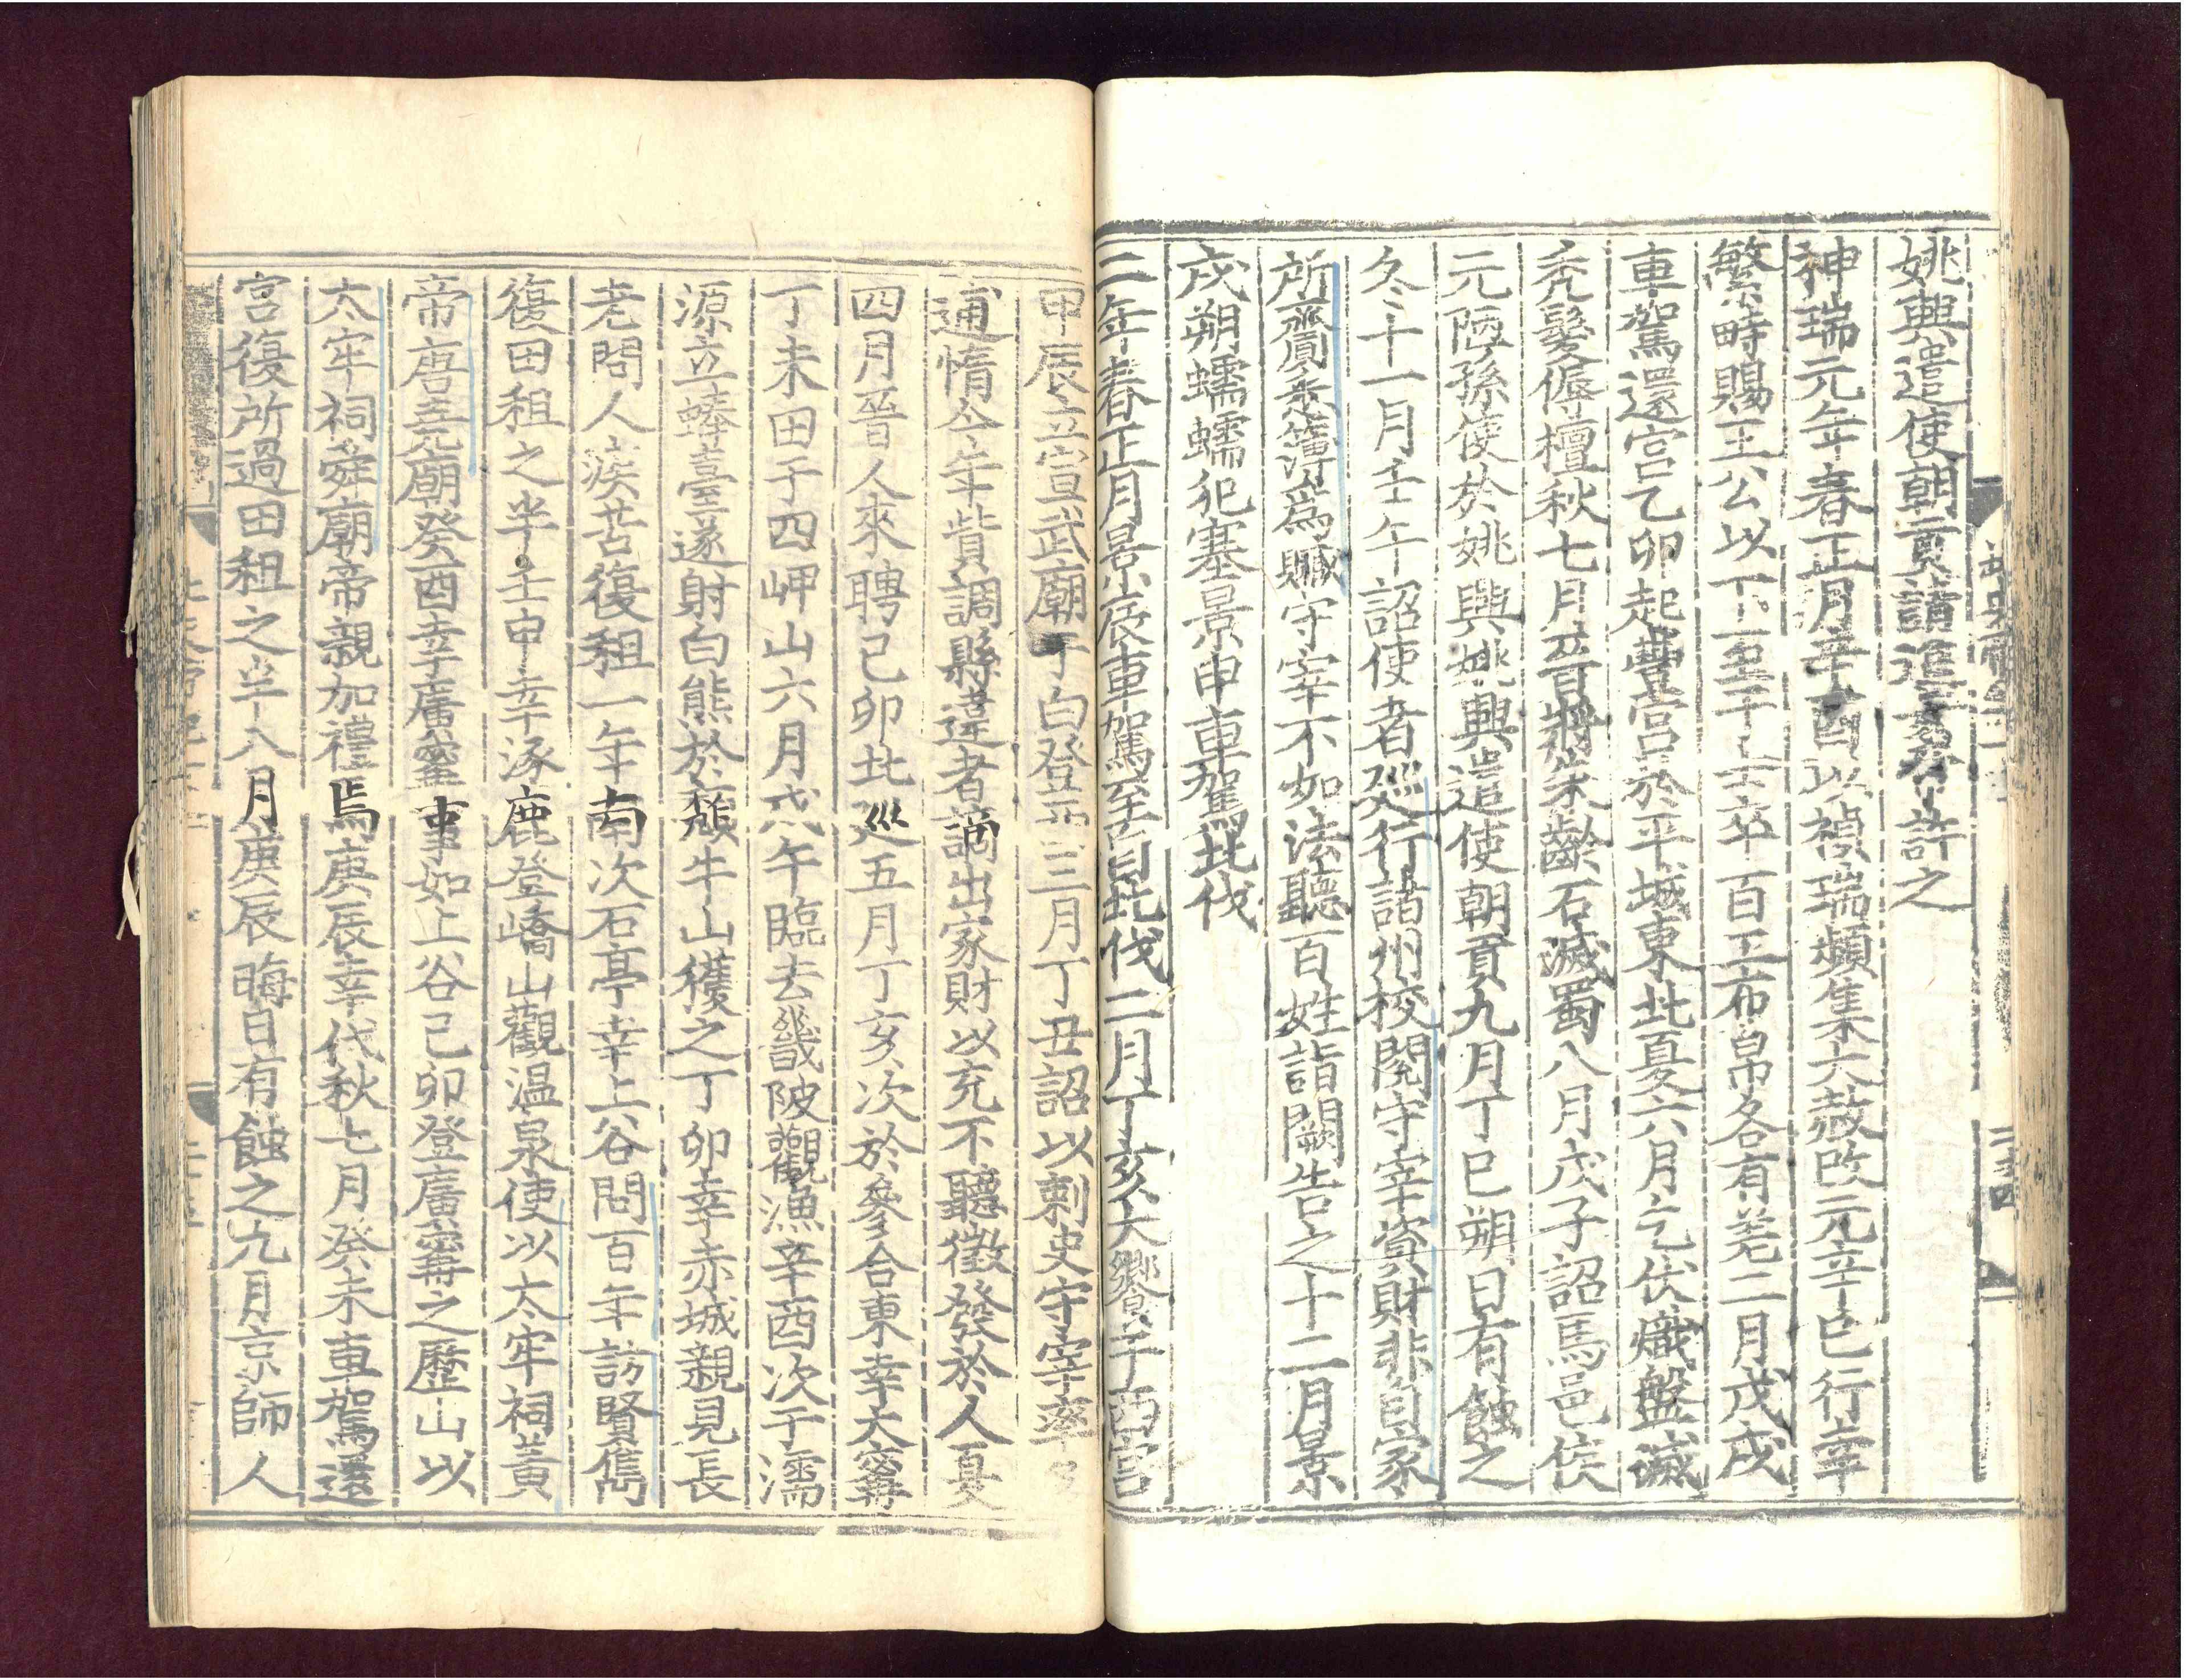 姚興遣使朝貢請進女帝許之
神瑞元年春正月辛酉以禎瑞頻集大赦改元辛巳行幸
繁畤賜王公以下至于士卒百工布帛各有差二月戊戌
車駕還宮乙卯起豊宮於平城東北夏六月乞伏熾盤滅
禿髮傉檀秋七月晉將朱齡石滅蜀八月戊子詔馬邑侯
元陋孫使於姚興姚興遣使朝貢九月丁巳朔日有蝕之
冬十一月壬午詔使者廵行諸州校閱守宰資財非自家
所齎悉簿為贓守宰不如法聽百姓詣闕告之十二月景
戌朔蠕蠕犯塞景申車駕北伐
二年春正月景辰車駕至自北伐二月丁亥大饗于西宮
甲辰立宣武廟于白登西三月丁丑詔以刺史守宰率多
逋惰今年貲調縣違者謫出家財以充不聽徵發於人夏
四月晉人來聘己卯北巡五月丁亥次於參合東幸大甯
丁未田于四岬山六月戊午臨去畿陂觀漁辛酉次于濡
源立蜯臺遂射白熊於頹牛山獲之丁卯幸赤城親見長
老問人疾苦復租一年南次石亭幸上谷問百年訪賢雋
復田租之半壬申幸涿鹿登嶠山觀温泉使以太牢祠黃
帝唐堯廟癸酉幸廣甯事如上谷己卯登廣甯之歷山以
太牢祠舜廟帝親加禮焉庚辰幸代秋七月癸未車駕還
宮復所過田租之半八月庚辰晦日有蝕之九月京師人